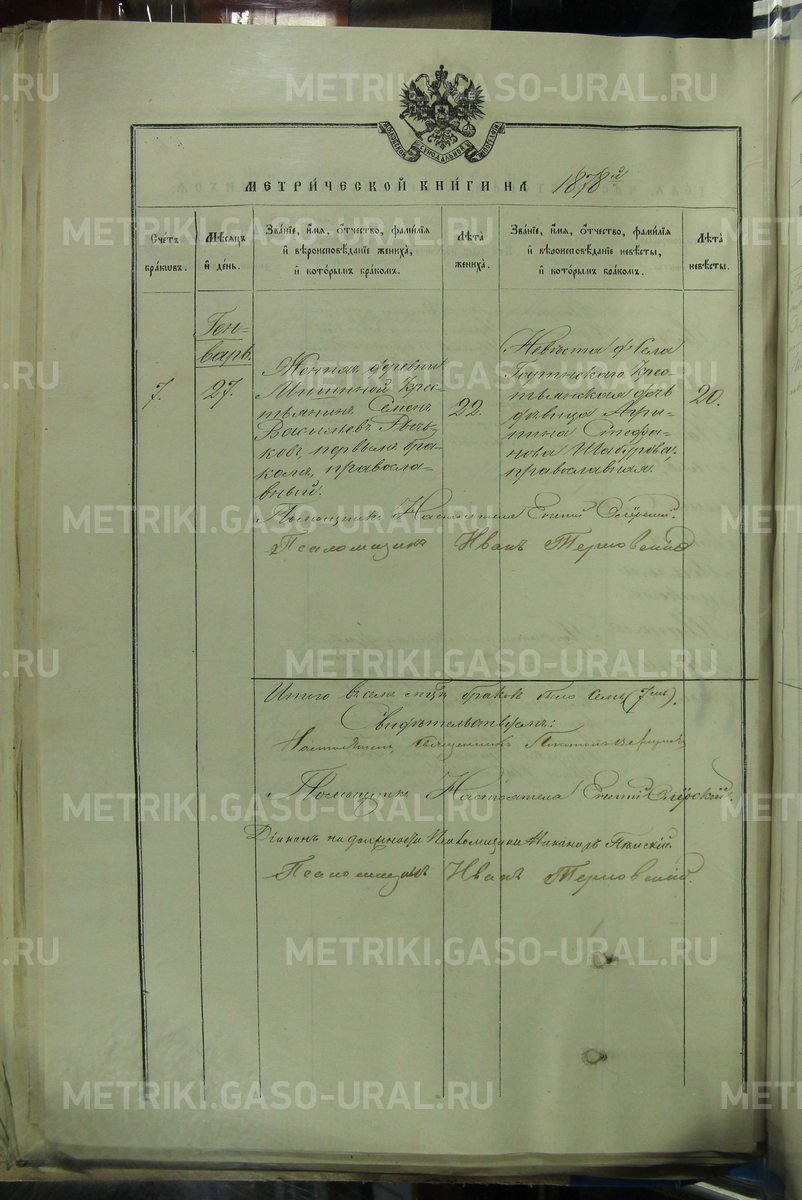 METRIKI.GASO-URAL.RU
МЕТРИ́ЧЕСКОЙ КНИ́ГИ НА 1878й
Сче́тъ бра́кωвъ.
Мѣ́сяцъ и҆ де́нь.
Зва́нїе, и҆́мя, ѻ҆́тчество, фами́лїя и҆ вѣроисповѣ́данїе жениха̀, и҆ кото́рымъ бра́комъ.
Лѣ́та жениха̀.
Зва́нїе, и҆́мя, ѻ҆́тчество, фами́лїя и҆ вѣроисповѣ́данїе невѣ́сты, и҆ кото́рымъ бра́комъ.
Лѣ́та невѣ́сты.
Ген-
варь.
7.
27.
Женихъ деревни
Мишиной Крес-
тьянинъ Семенъ
Васильевъ
ковъ, первымъ бра-
комъ, православ-
вный.
22.
Невѣста села
Крес-
тьянская дочь
дѣвица Агри-
пина Стефа-
нова Шабурова,
православная.
20.
Помощникъ Настоятеля Евгений
Псаломщикъ Иванъ Терновский
Итого въ семъ м-цѣ браковъ было семь (7мь).
Свидѣтельствуемъ:
Настоятель Священникъ
Помощникъ Настоятеля Евгений
Діаконъ на должности Псаломщика Никаноръ
Псаломщикъ Иванъ Терновский.